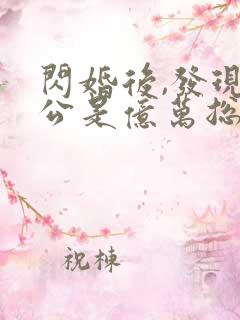 閃婚後,發現
公是億萬
祝棟